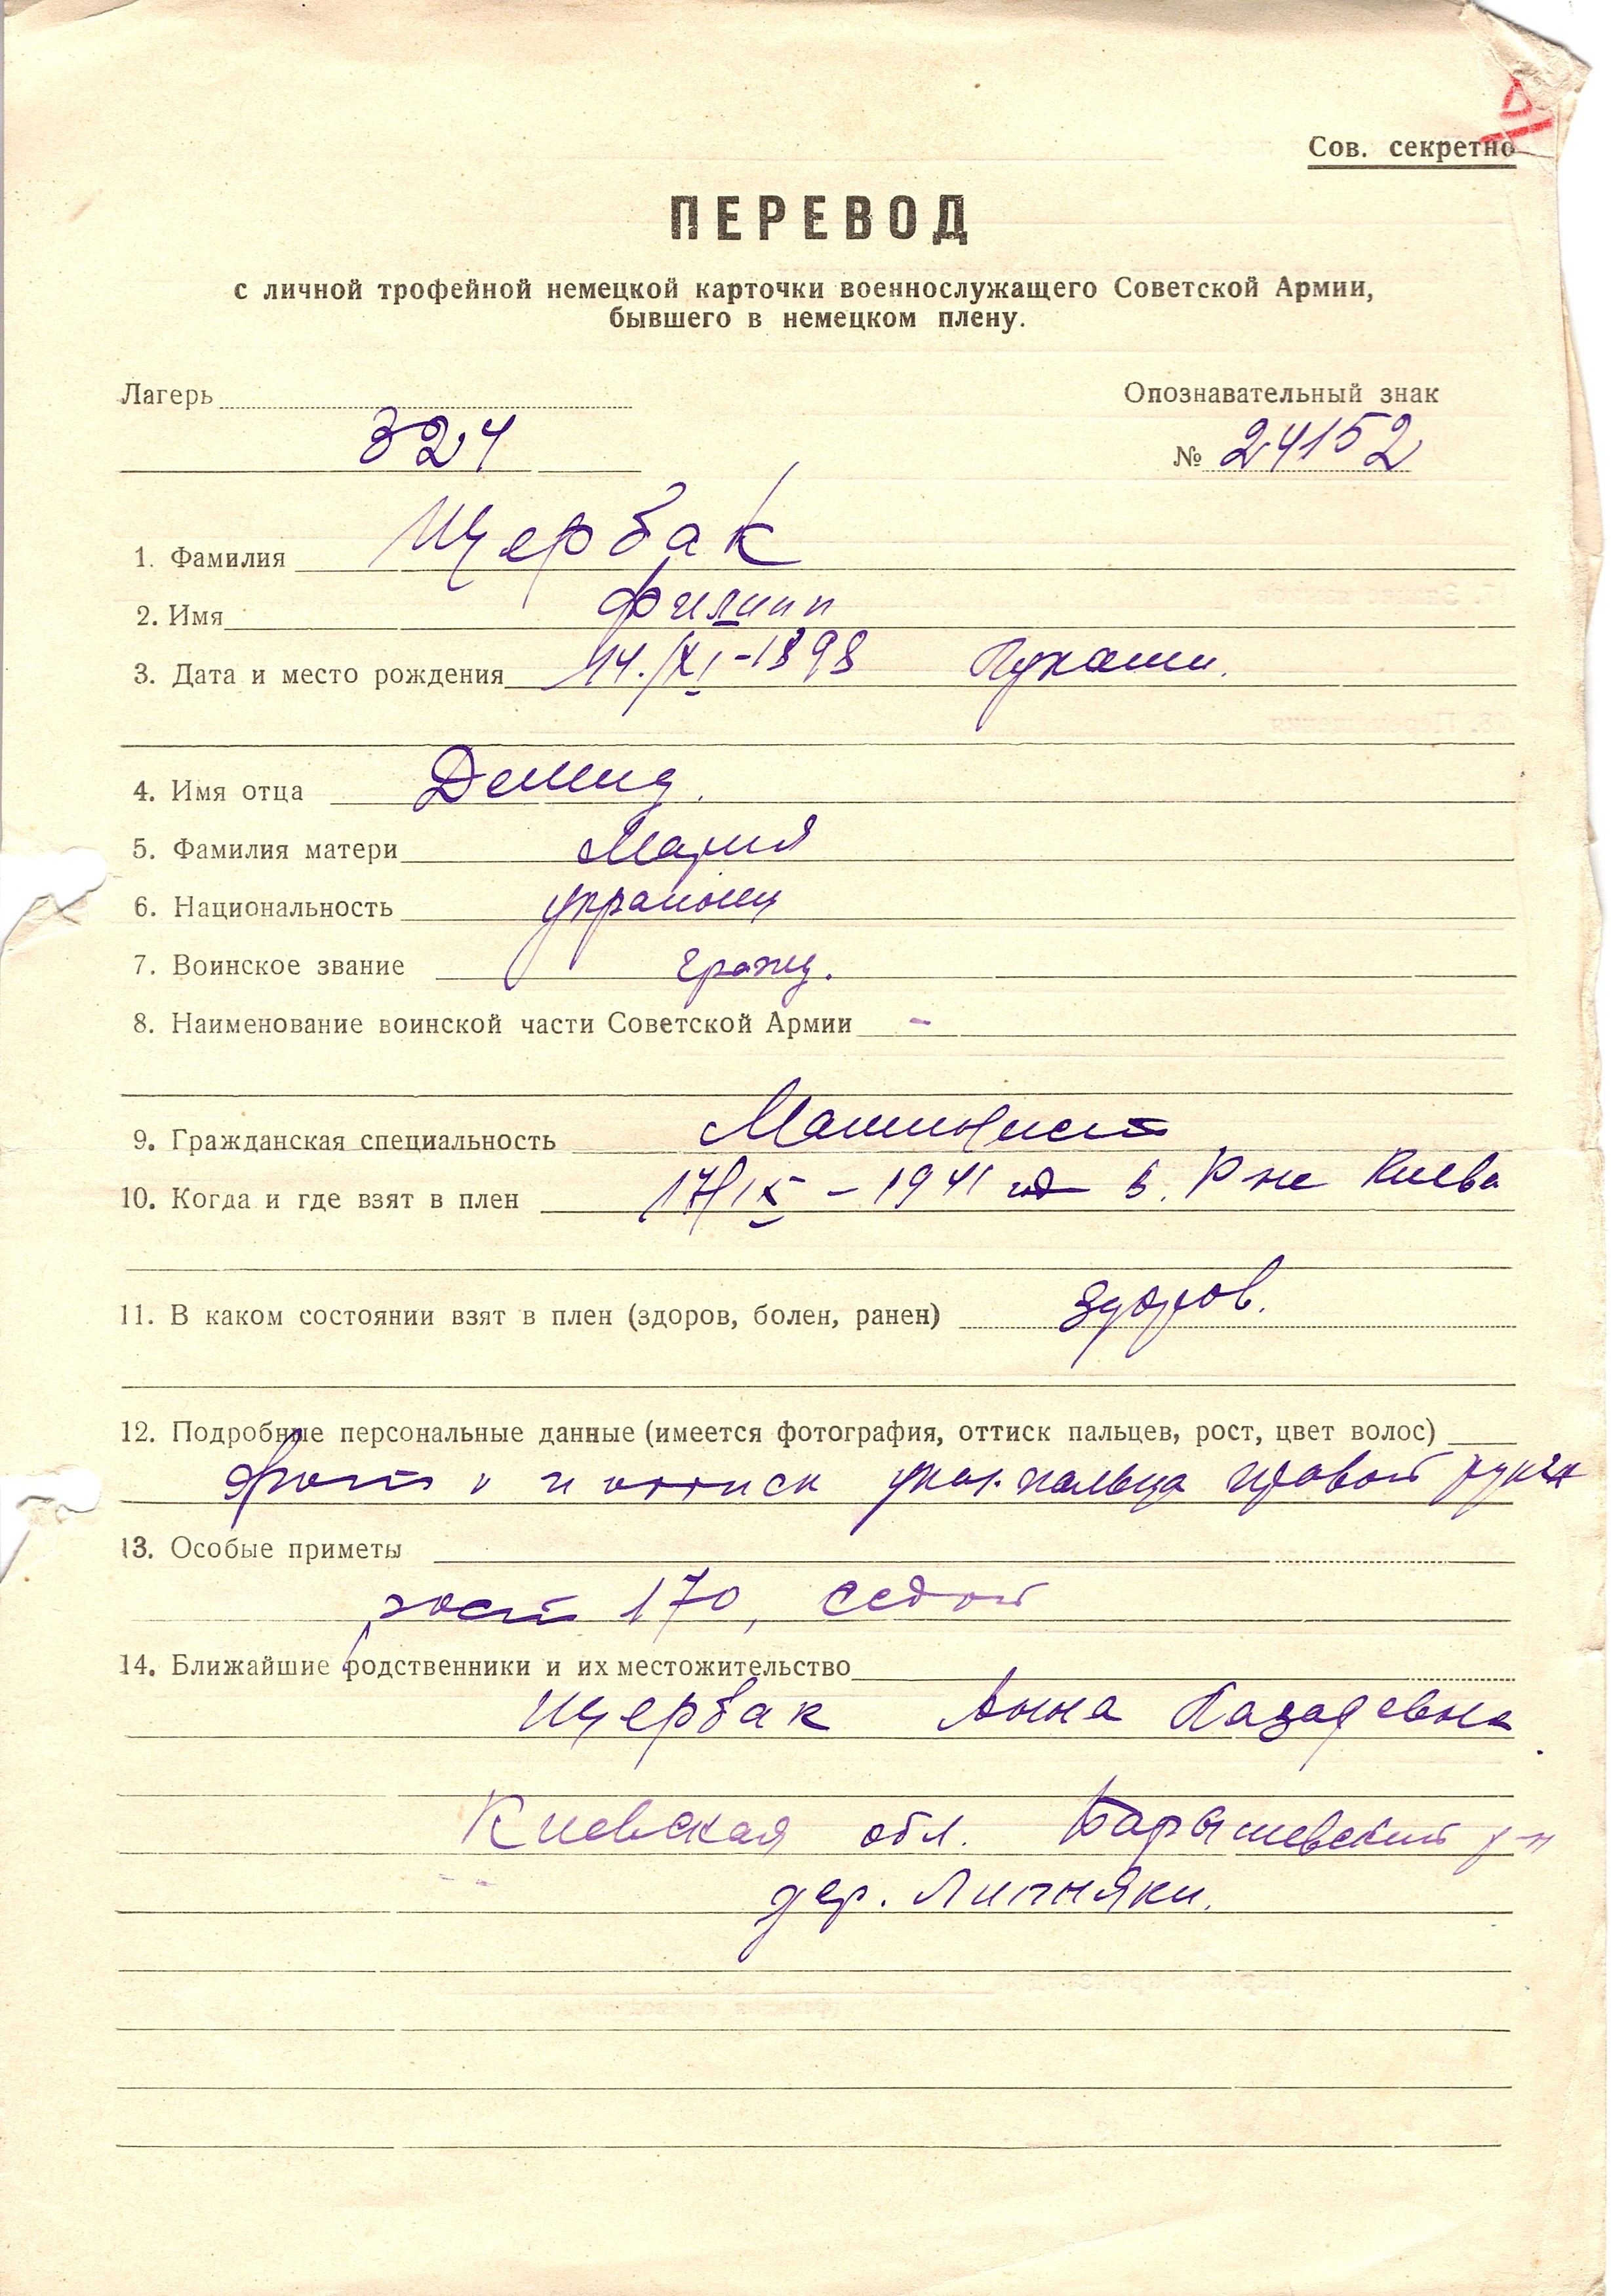 Сов. секретно
ПЕРЕВОД
с личной трофейной немецкой карточки военнослужащего Советской Армии,
бывшего в немецком плену.
Лагерь Опознавательный знак
324 № 24152
1. Фамилия Щербак
2. Имя Филипп
3. Дата и место рождения 14./XI-1898 Пукаши.
4. Имя отца Демид.
5. Фамилия матери Мария
6. Национальность украинец
7. Воинское звание гражд.
8. Наименование воинской части Советской Армии -
9. Гражданская специальность Машинист
10. Когда и где взят в плен 17/IX-1941 в. Р не Киева
11. В каком состоянии взят в плен (здоров, болен, ранен) здоров.
12. Подробные персональные данные (имеется фотография, оттиск пальцев, рост, цвет волос)
и оттиск указ. пальца правой руки
13. Особые приметы
рост 170, седой
14. Ближайшие родственники и их местожительство
Щербак Анна
Киевская обл. Барышевский р-н
дер. Липняки.